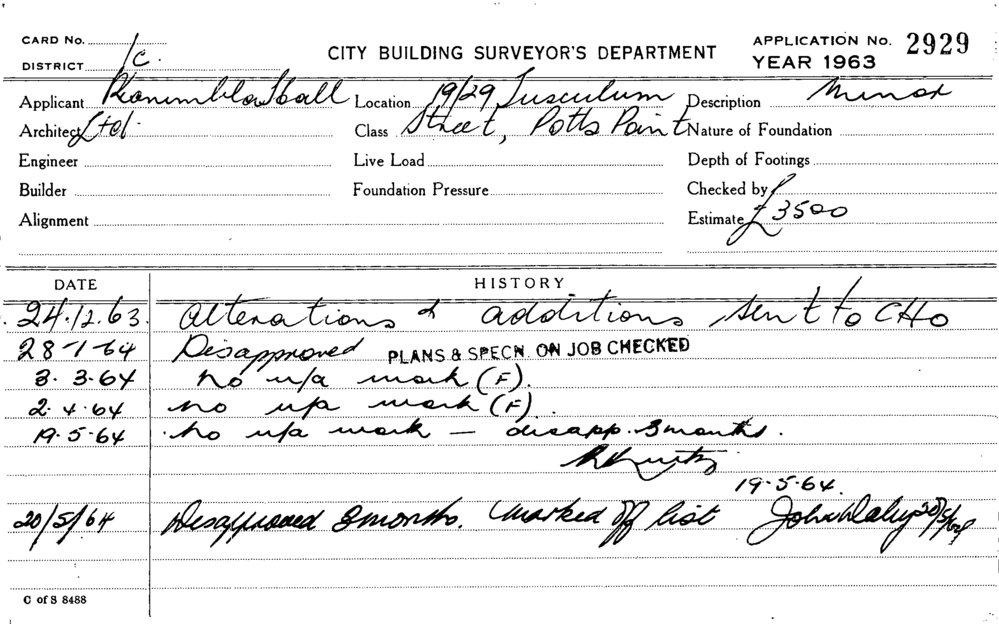 CARD No.
DISTRICT 1c.
CITY BUILDING SURVEYOR'S DEPARTMENT
APPLICATION No. 2929
YEAR 1963
Applicant Kanimbla Hall Location 19/29 Tusculum Description Minor
Architect Ltd. Class Street, Potts Point Nature of Foundation
Engineer Live Load Depth of Footings
Builder Foundation Pressure Checked by
Alignment Estimate £3500
DATE HISTORY
24.12.63. Alterations & additions sent to CHO
28-1-64 Disapproved PLANS & SPECN. ON JOB CHECKED
3.3.64 no u/a work (F).
2.4.64 no u/a work (F).
19.5.64 no u/a work — disapp. 3 months.
19.5.64.
20/5/64 Disapproved 3 months. Marked off list John Daley 20/5/64
C of S 8488